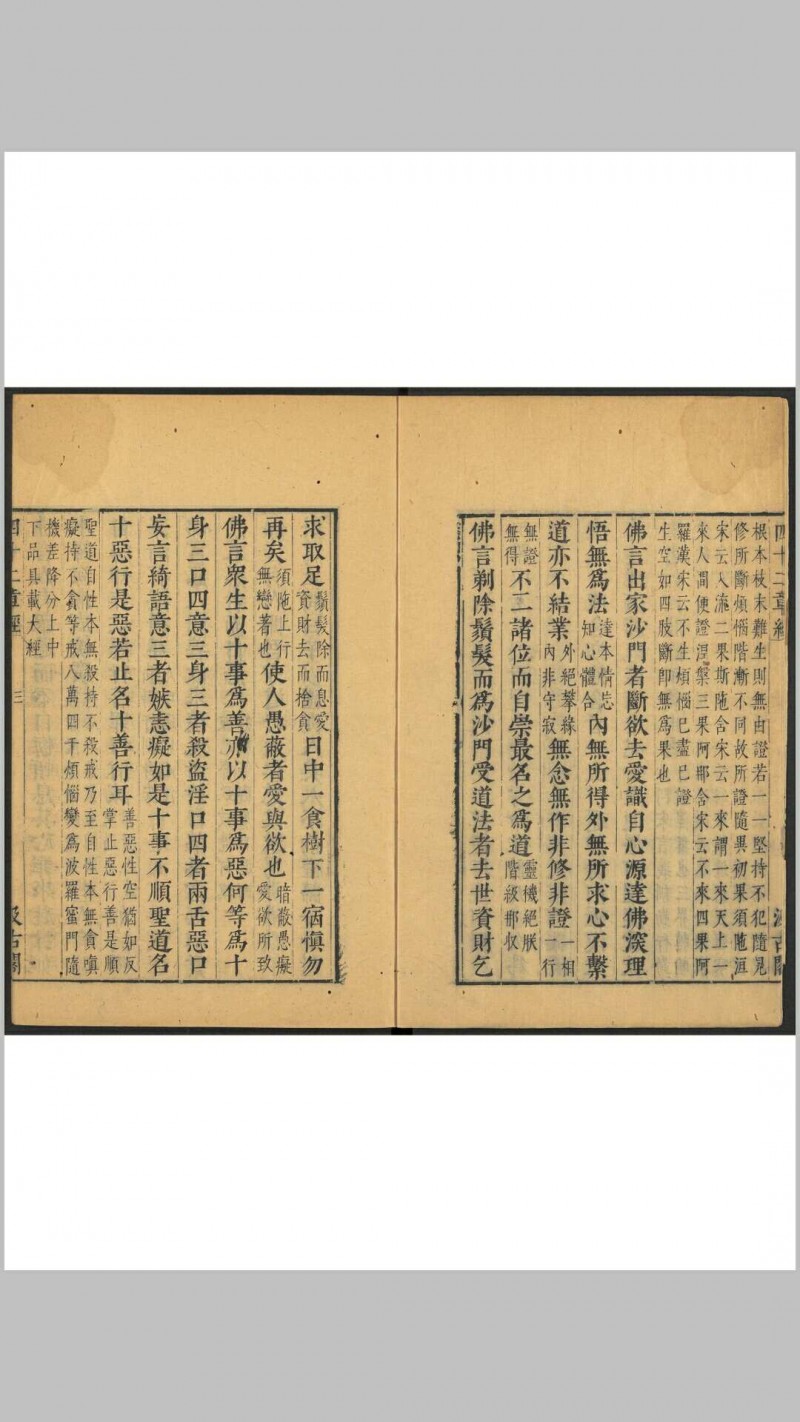 四十二章經
汲古閣
根本枝末難生則無由證若一一堅持不犯隨見
修所斷煩惱階漸不同故所證隨異初果須陁洹
宋云入流二果斯陁含宋云一來謂一來天上一
來人間便證涅槃三果阿那含宋云不來四果阿
羅漢宋云不生煩惱已盡已證
生空如四肢斷即無爲果也
佛言出家沙門者斷欲去愛識自心源達佛深理
悟無爲法達本情忘知心體合內無所得外無所求心不繫
道亦不結業外絕攀緣內非守寂無念無作非修非證一相一行
無證無得不二諸位而自崇最名之爲道靈機絕朕階級那收
佛言剃除鬚髮而爲沙門受道法者去世資財乞
求取足鬚髮除而息愛資財去而捨貪日中一食樹下一宿愼勿
再矣須陁上行無戀著也使人愚蔽者愛與欲也暗蔽愚癡愛欲所致
佛言衆生以十事爲善亦以十事爲惡何等爲十
身三口四意三身三者殺盜淫口四者兩舌惡口
妄言綺語意三者嫉恚癡如是十事不順聖道名
十惡行是惡若止名十善行耳善惡性空猶如反掌止惡行善是順
聖道自性本無殺持不殺戒乃至自性本無貪嗔
癡持不貪等戒八萬四千煩惱變爲波羅蜜門隨
機差降分上中
下品具載大經
四十二章經
三
汲古閣